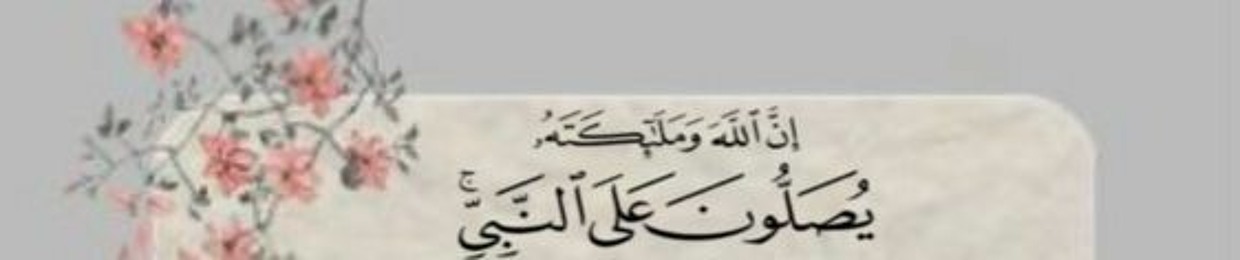 إِنَّ ٱللَّهَ وَمَلَٰٓئِكَتَهُۥ
يُصَلُّونَ عَلَى ٱلنَّبِيِّۚ